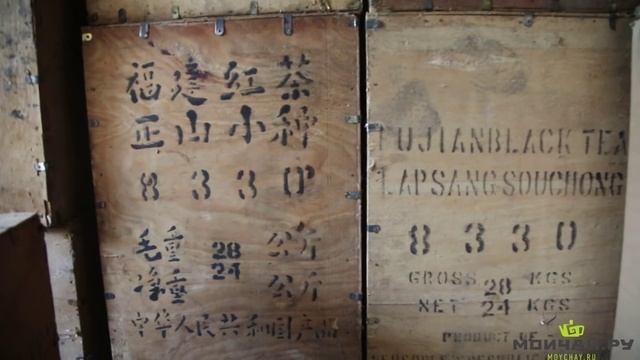 福建红茶
正山小种
8330
毛重 28 公斤
净重 24 公斤
中华人民共和国产品
FUJIAN BLACK TEA
LAPSANG SOUCHONG
8330
GROSS 28 KGS
NET 24 KGS
PRODUCT OF
МОЙЧАЙ.РУ
MOYCHAY.RU